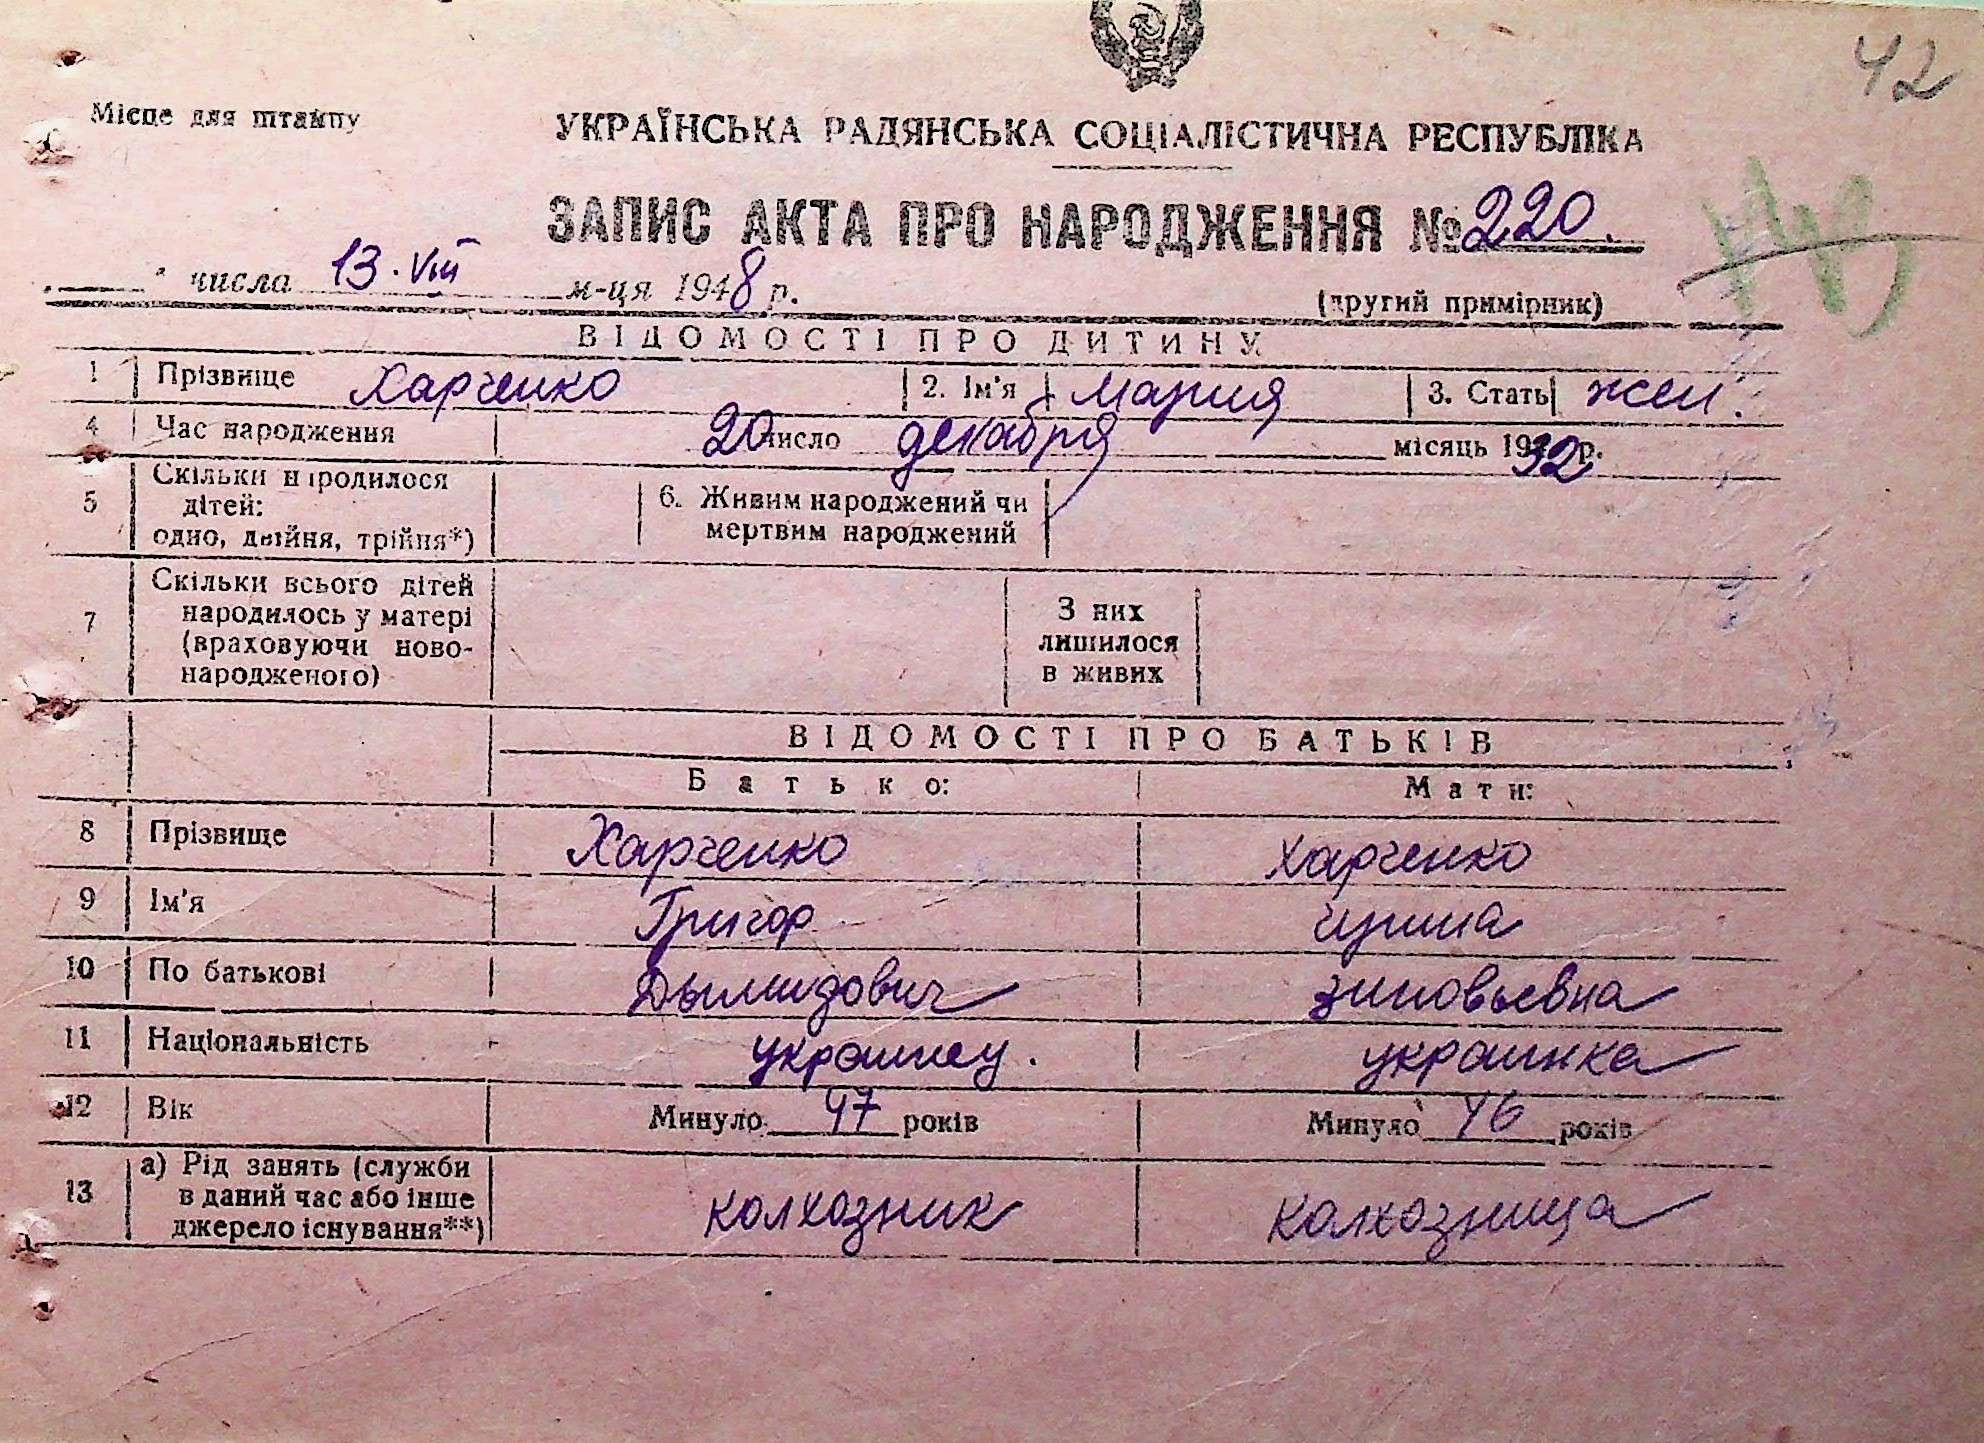 42
Місце для штампу
УКРАЇНСЬКА РАДЯНСЬКА СОЦІАЛІСТИЧНА РЕСПУБЛІКА
ЗАПИС АКТА ПРО НАРОДЖЕННЯ № 220.
" числа 13. VIII м-ця 1948 р.
(другий примірник)
ВІДОМОСТІ ПРО ДИТИНУ
1 Прізвище Харченко 2. Ім'я Мария 3. Стать жен.
4 Час народження 20 число декабря місяць 1932 р.
5 Скільки народилося
дітей:
одно, двійня, трійня*)
6. Живим народжений чи
мертвим народжений
7 Скільки всього дітей
народилось у матері
(враховуючи ново-
народженого)
З них
лишилося
в живих
ВІДОМОСТІ ПРО БАТЬКІВ
Батько: Мати:
8 Прізвище Харченко Харченко
9 Ім'я Григор Ирина
10 По батькові Дымидович Зиновьевна
11 Національність украинец. украинка
12 Вік Минуло 47 років Минуло 46 років
13 а) Рід занять (служби
в даний час або інше
джерело існування**)
колхозник колхозница